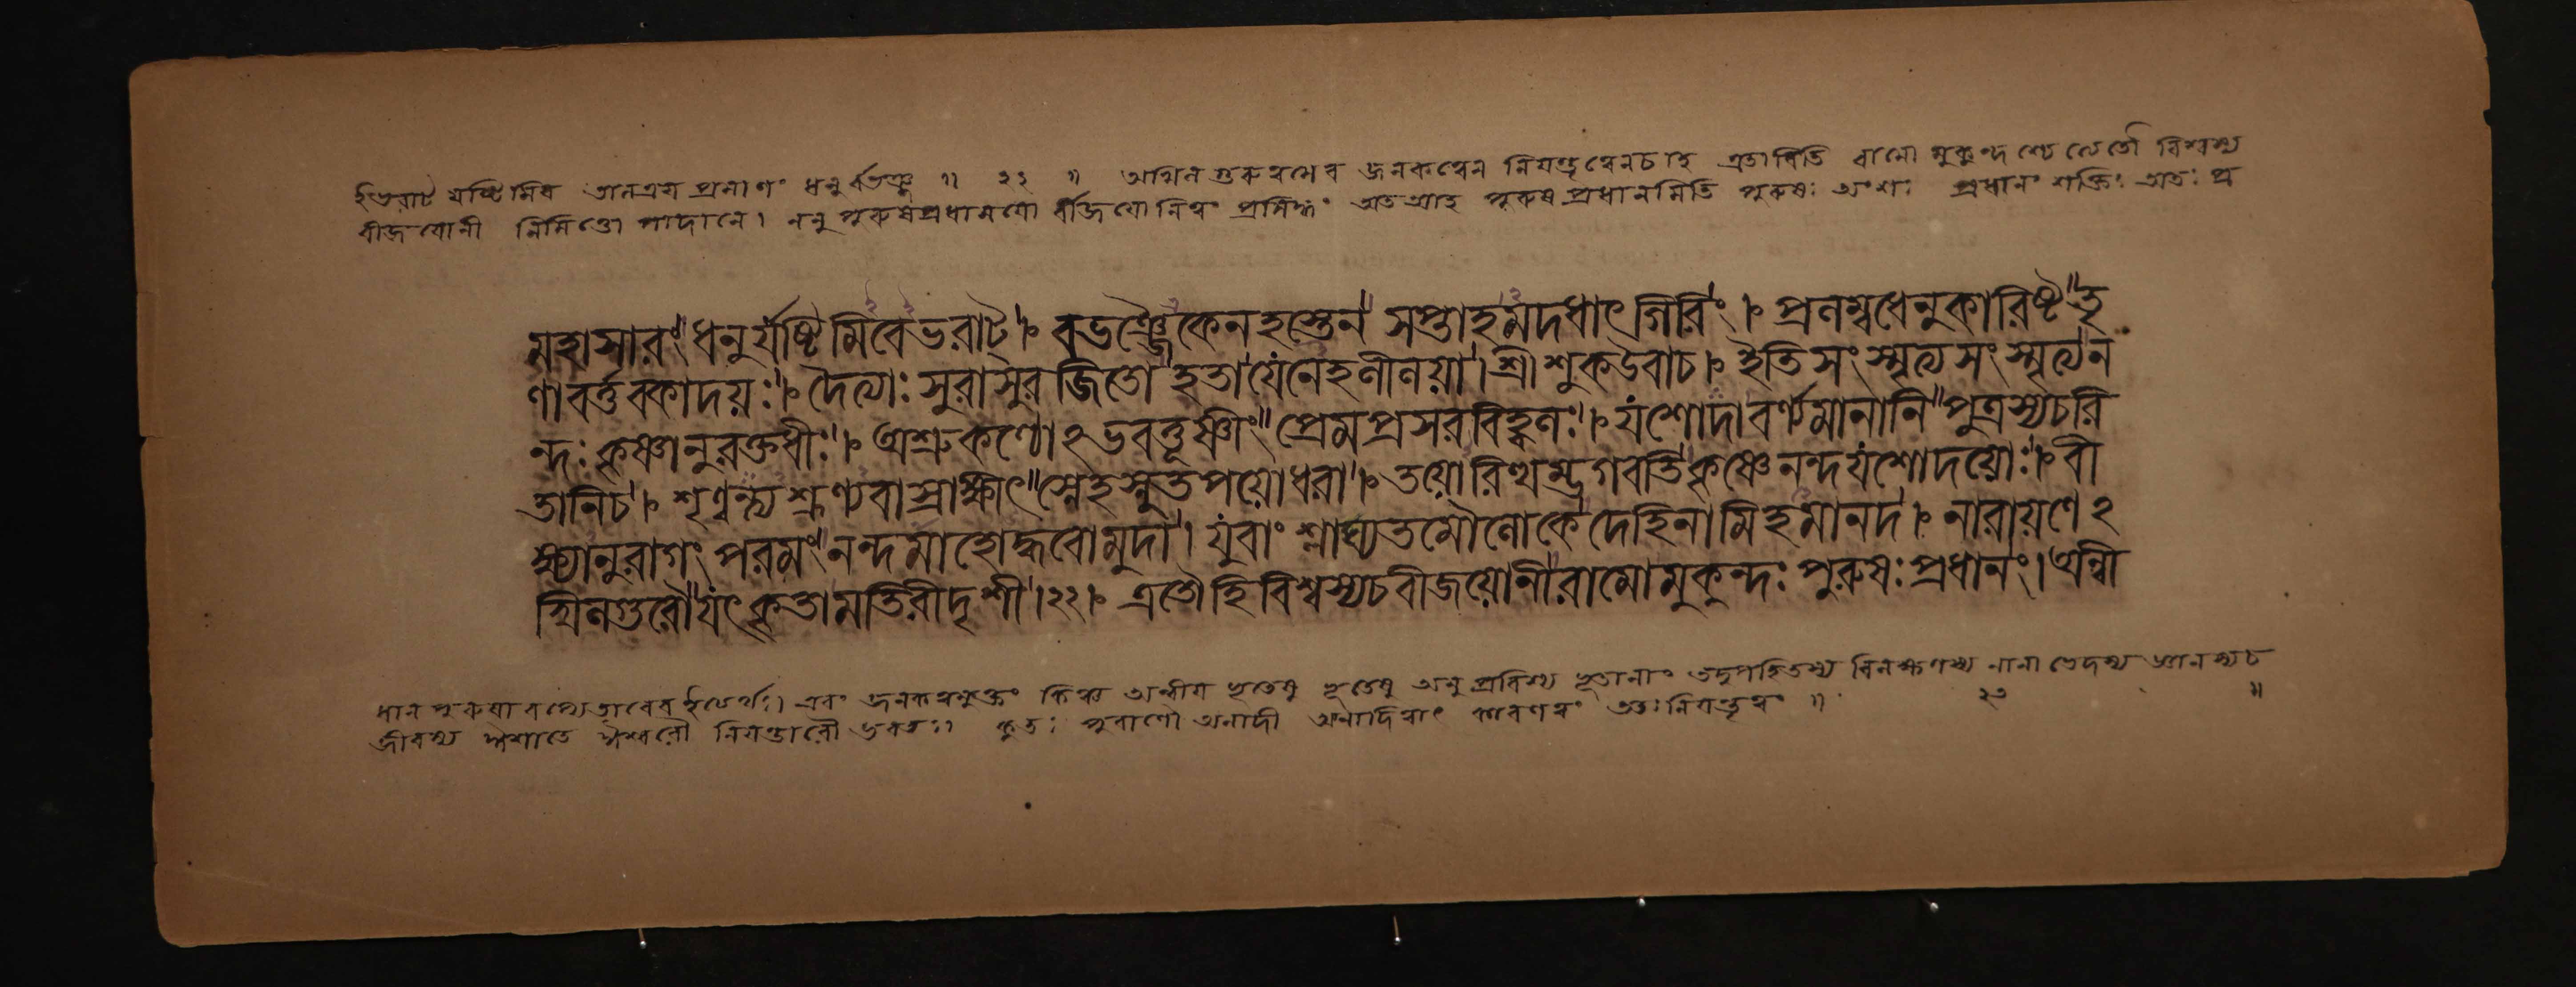 ইভরাট্ যষ্টিমিব তালত্রয় প্রমাণং ধনুর্বভঞ্জ ॥ ২২ ॥ অখিলগুরুত্বমেব জনকত্বেন নিয়ন্তৃত্বেনচাহ এতাবিতি রামো মুকুন্দশ্চেত্যেতৌ বিশ্বস্য
বীজযোনী নিমিত্তোপাদানে। ননু পুরুষপ্রধানয়ো র্বীজযোনিত্বং প্রসিদ্ধং অতআহ পুরুষপ্রধানমিতি পুরুষঃ অংশঃ প্রধানং শক্তিঃ অতঃ প্র
মহাসারং ধনুর্যষ্টিমিবেভরাট্। বভঞ্জৈকেনহস্তেন সপ্তাহমদধাৎগিরিং। প্রলম্বধেনুকারিষ্ট তৃ
ণাবর্ত্তবকাদয়ঃ। দৈত্যাঃ সুরাসুরজিতো হতা যেনেহলীলয়া। শ্রীশুকউবাচ। ইতিসংস্মৃত্যসংস্মৃত্যন
ন্দঃ কৃষ্ণানুরক্তধীঃ। অশ্রুকণ্ঠোঽভবত্তূষ্ণীং প্রেমপ্রসরবিহ্বলঃ। যশোদাবর্ণ্যমানানি পুত্রস্যচরি
তানিচ। শৃণ্বন্ত্যশ্রূণ্যবাস্রাক্ষীৎ স্নেহস্নুতপয়োধরা। তয়োরিত্থম্ভগবতি কৃষ্ণেনন্দযশোদয়োঃ। বী
ক্ষ্যানুরাগং পরমং নন্দমাহোদ্ধবোমুদা। যুবাং শ্লাঘ্যতমৌলোকে দেহিনামিহমানদ। নারায়ণেঽ
খিলগুরৌ যৎকৃতামতিরীদৃশী। ২২। এতৌহিবিশ্বস্যচবীজযোনী রামোমুকুন্দঃ পুরুষঃ প্রধানং। অন্বী
ধান পুরুষাবপ্যেতাবেবইত্যর্থঃ। এবং জনকত্বমুক্তং কিঞ্চ অন্বীয় ভূতেষু ভূতেষু অনুপ্রবিশ্য ভূতানাং তদুপহিতস্য বিলক্ষণস্য নানাভেদস্য জ্ঞানস্যচ
জীবস্য ঈশাতে ঈশ্বরৌ নিয়ন্তারৌ ভবতঃ। কুতঃ পুরাণৌ অনাদী অনাদিত্বাৎ কারণত্বং ততঃনিয়ন্তৃত্বং ॥ ২৩ ॥